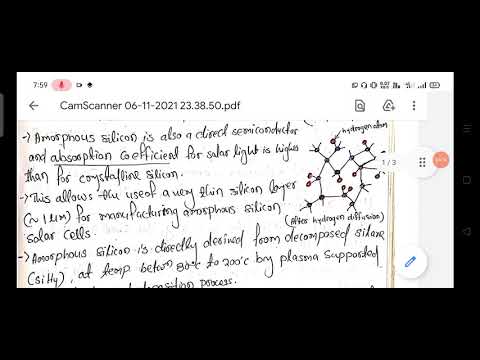 7:59
CamScanner 06-11-2021 23.38.50.pdf
1/3
→ Amorphous silicon is also a direct semiconductor
and absorption coefficient for solar light is higher
than for crystalline silicon.
→ This allows the use of a very thin silicon layer
(~1μm) for manufacturing amorphous silicon
solar cells.
hydrogen atom
(After hydrogen diffusion)
→ Amorphous silicon is directly derived from decomposed silane
(SiH4), at temp between 80°c to 200°c by plasma supported
process.